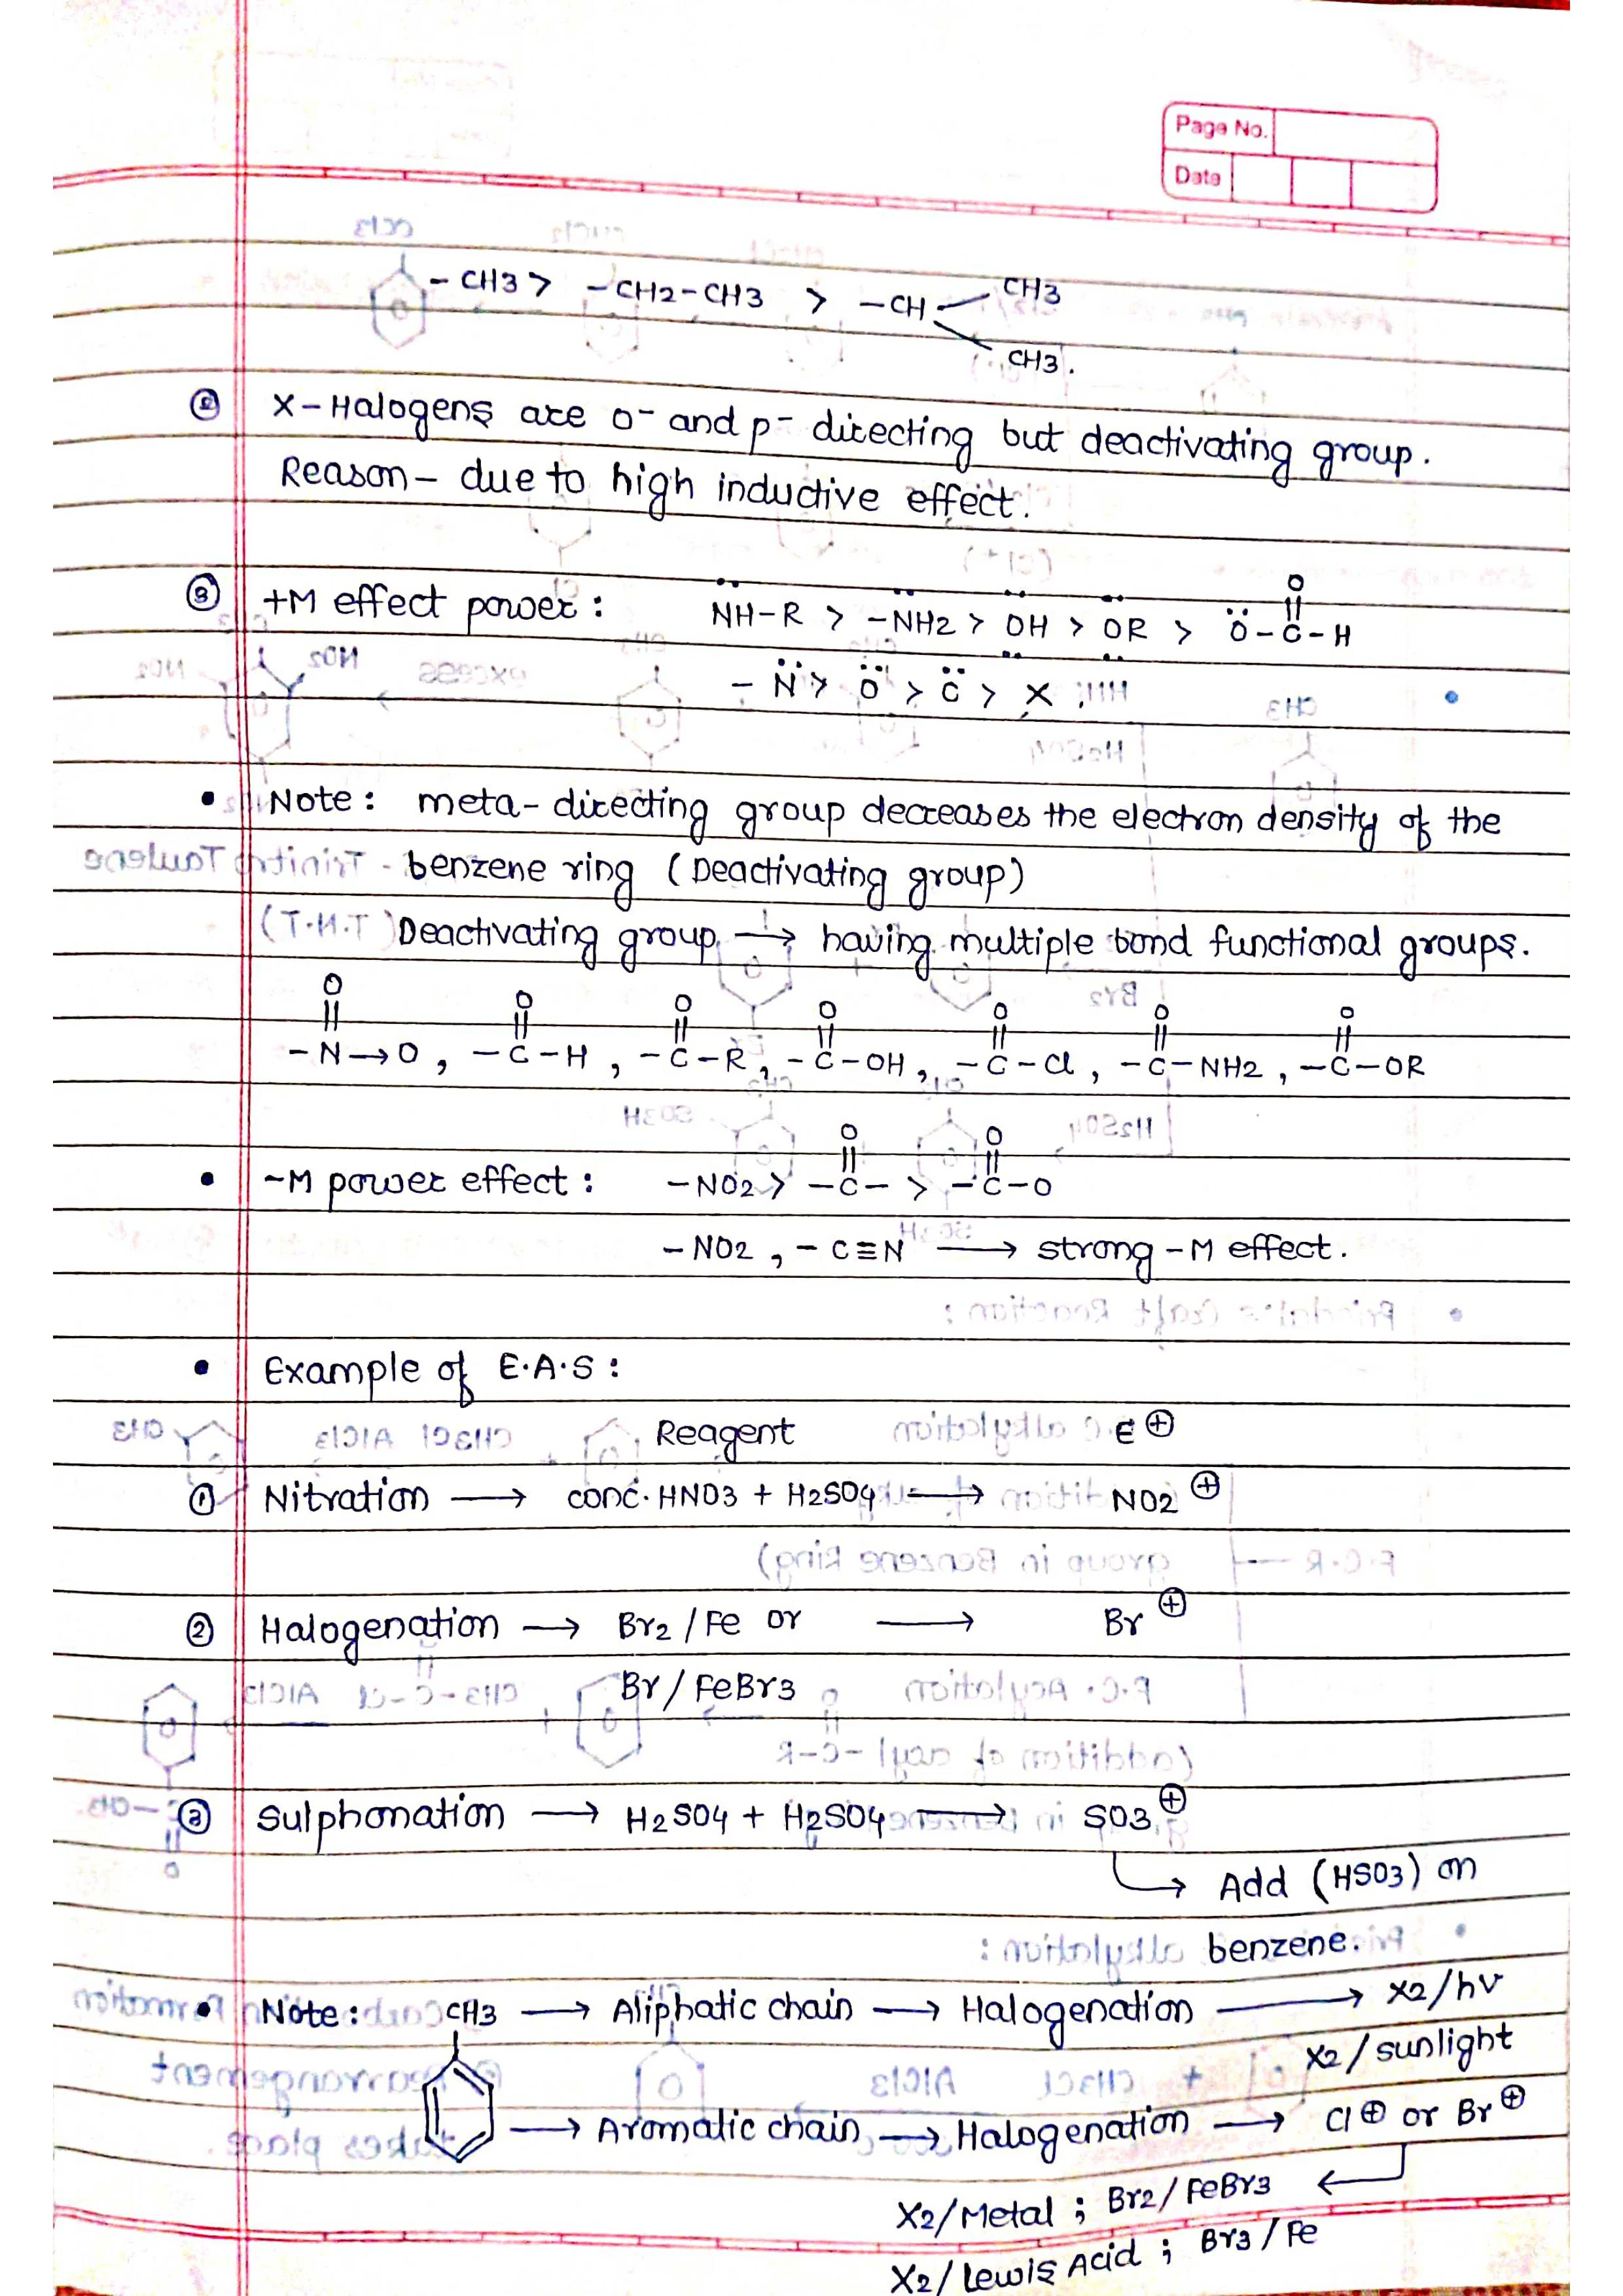 Page No.
Date
- CH3 > - CH2 - CH3 > - CH - CH3
CH3.
② X - Halogens are o- and p- directing but deactivating group.
Reason - due to high inductive effect.
③ +M effect power : NH-R > -NH2 > OH > OR > O-C-H
O
- N > O > C > X
• Note : meta-directing group decreases the electron density of the
benzene ring (Deactivating group)
Deactivating group → having multiple bond functional groups.
O O O O O O O
-N→O , -C-H , -C-R , -C-OH , -C-Cl , -C-NH2 , -C-OR
O O
• -M power effect : -NO2 > -C- > -C-O
-NO2 , -C≡N → strong -M effect.
• Example of E.A.S :
Reagent E⊕
① Nitration → conc. HNO3 + H2SO4 → NO2⊕
② Halogenation → Br2 / Fe or → Br⊕
Br / FeBr3
③ Sulphonation → H2SO4 + H2SO4 → SO3⊕
→ Add (HSO3) on
benzene.
• Note : CH3 → Aliphatic chain → Halogenation → X2/hv
X2 / sunlight
→ Aromatic chain → Halogenation → Cl⊕ or Br⊕
X2/Metal ; Br2/FeBr3
X2/Lewis Acid ; Br3/Fe